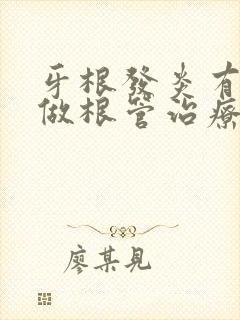 牙根發炎有
做根管治療
廖某見